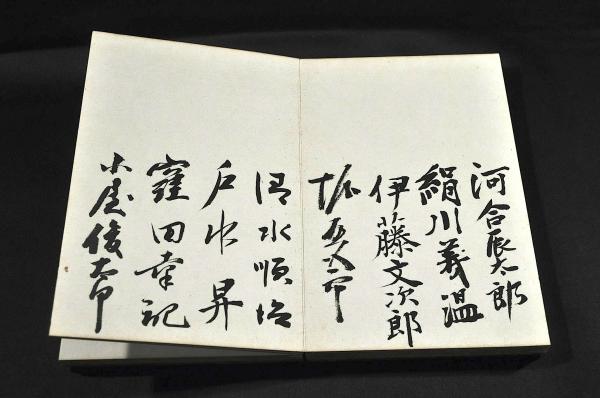 河合辰太郎
絹川義温
伊藤文次郎
堀五郎
清水順治
戸水昇
窪田幸記
小尾俊太郎